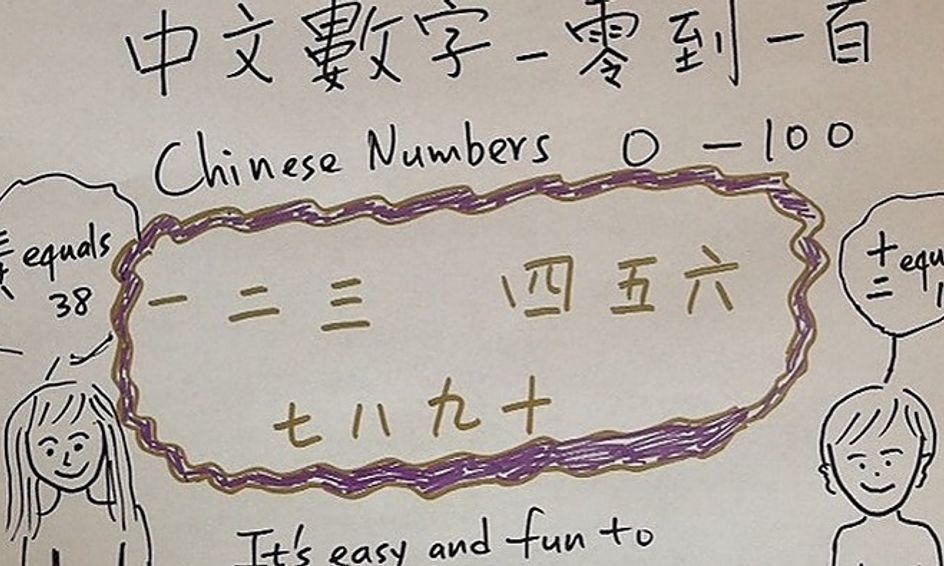 中文數字-零到一百
Chinese Numbers 0-100
equals
38
一二三 四五六
七八九十
十二
It's easy and fun to